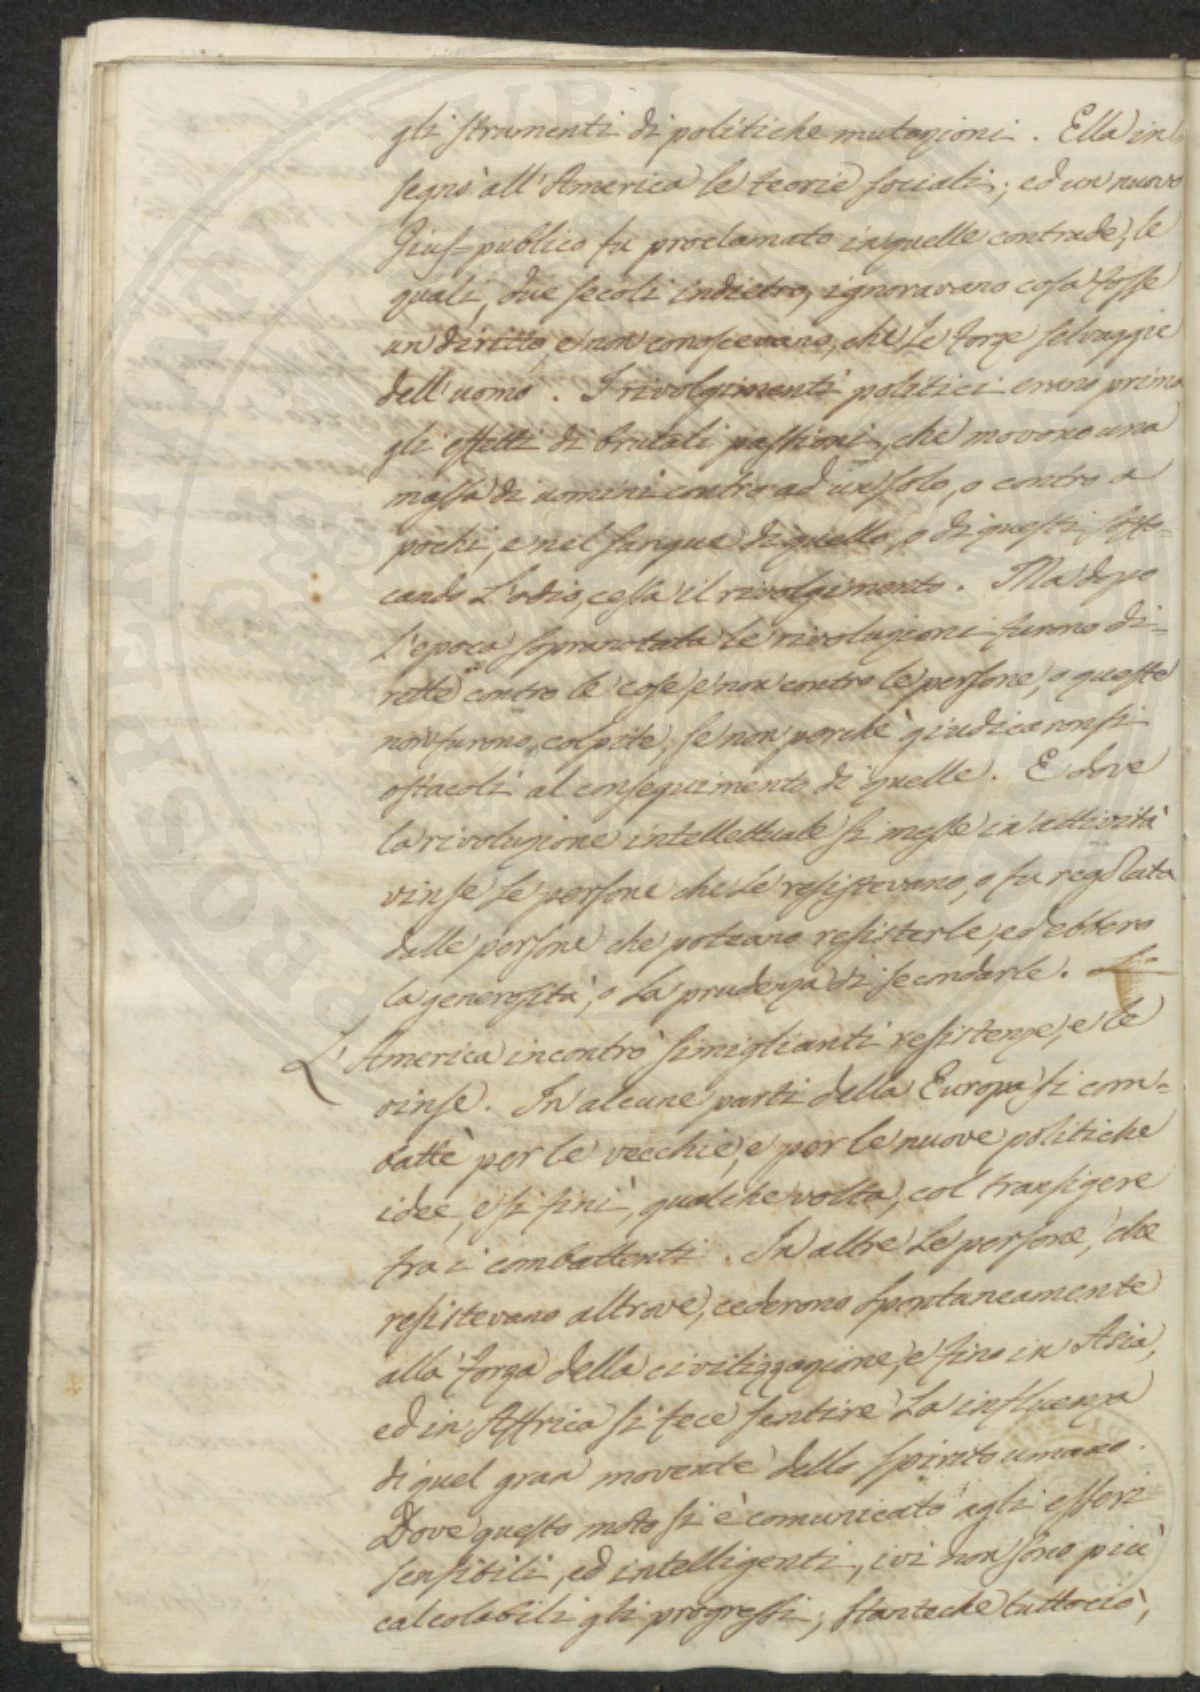 gli strumenti di politiche mutazioni. Ella in-
segnò all'America le teorie sociali; ed un nuovo
Gius-publico fu proclamato in quelle contrade, le
quali, due secoli indietro, ignoravano cosa fosse
un diritto, e non conoscevano, che le forze selvaggie
dell'uomo. I rivolgimenti politici erano prima
gli effetti di brutali passioni, che movono una
massa di uomini contro ad un solo, o contro a
pochi, e nel sangue di quello, o di questi, soffo-
cando l'odio, cessa il rivolgimento. Ma dopo
l'epoca sopranotata le rivoluzioni furono di-
rette contro le cose, e non contro le persone, o queste
non furono colpite, se non perchè giudicaronsi
ostacoli al conseguimento di quelle. E dove
la rivoluzione intellettuale si messe in attività
vinse le persone che le resistevano, o fu regolata
dalle persone che poteano resisterle, ed ebbero
la generosità, o la prudenza di secondarle.
L'America incontrò simiglianti resistenze, e le
vinse. In alcune parti della Europa si com-
battè per le vecchie, e per le nuove politiche
idee, e si finì, qualche volta, col transigere
tra i combattenti. In altre le persone, che
resistevano altrove, cederono spontaneamente
alla forza della civilizzazione, e fino in Asia,
ed in Affrica si fece sentire la influenza
di quel gran movente dello spirito umano.
Dove questo moto si è comunicato agli esseri
sensibili, ed intelligenti, ivi non sono più
calcolabili gli progressi; stanteche tuttociò,